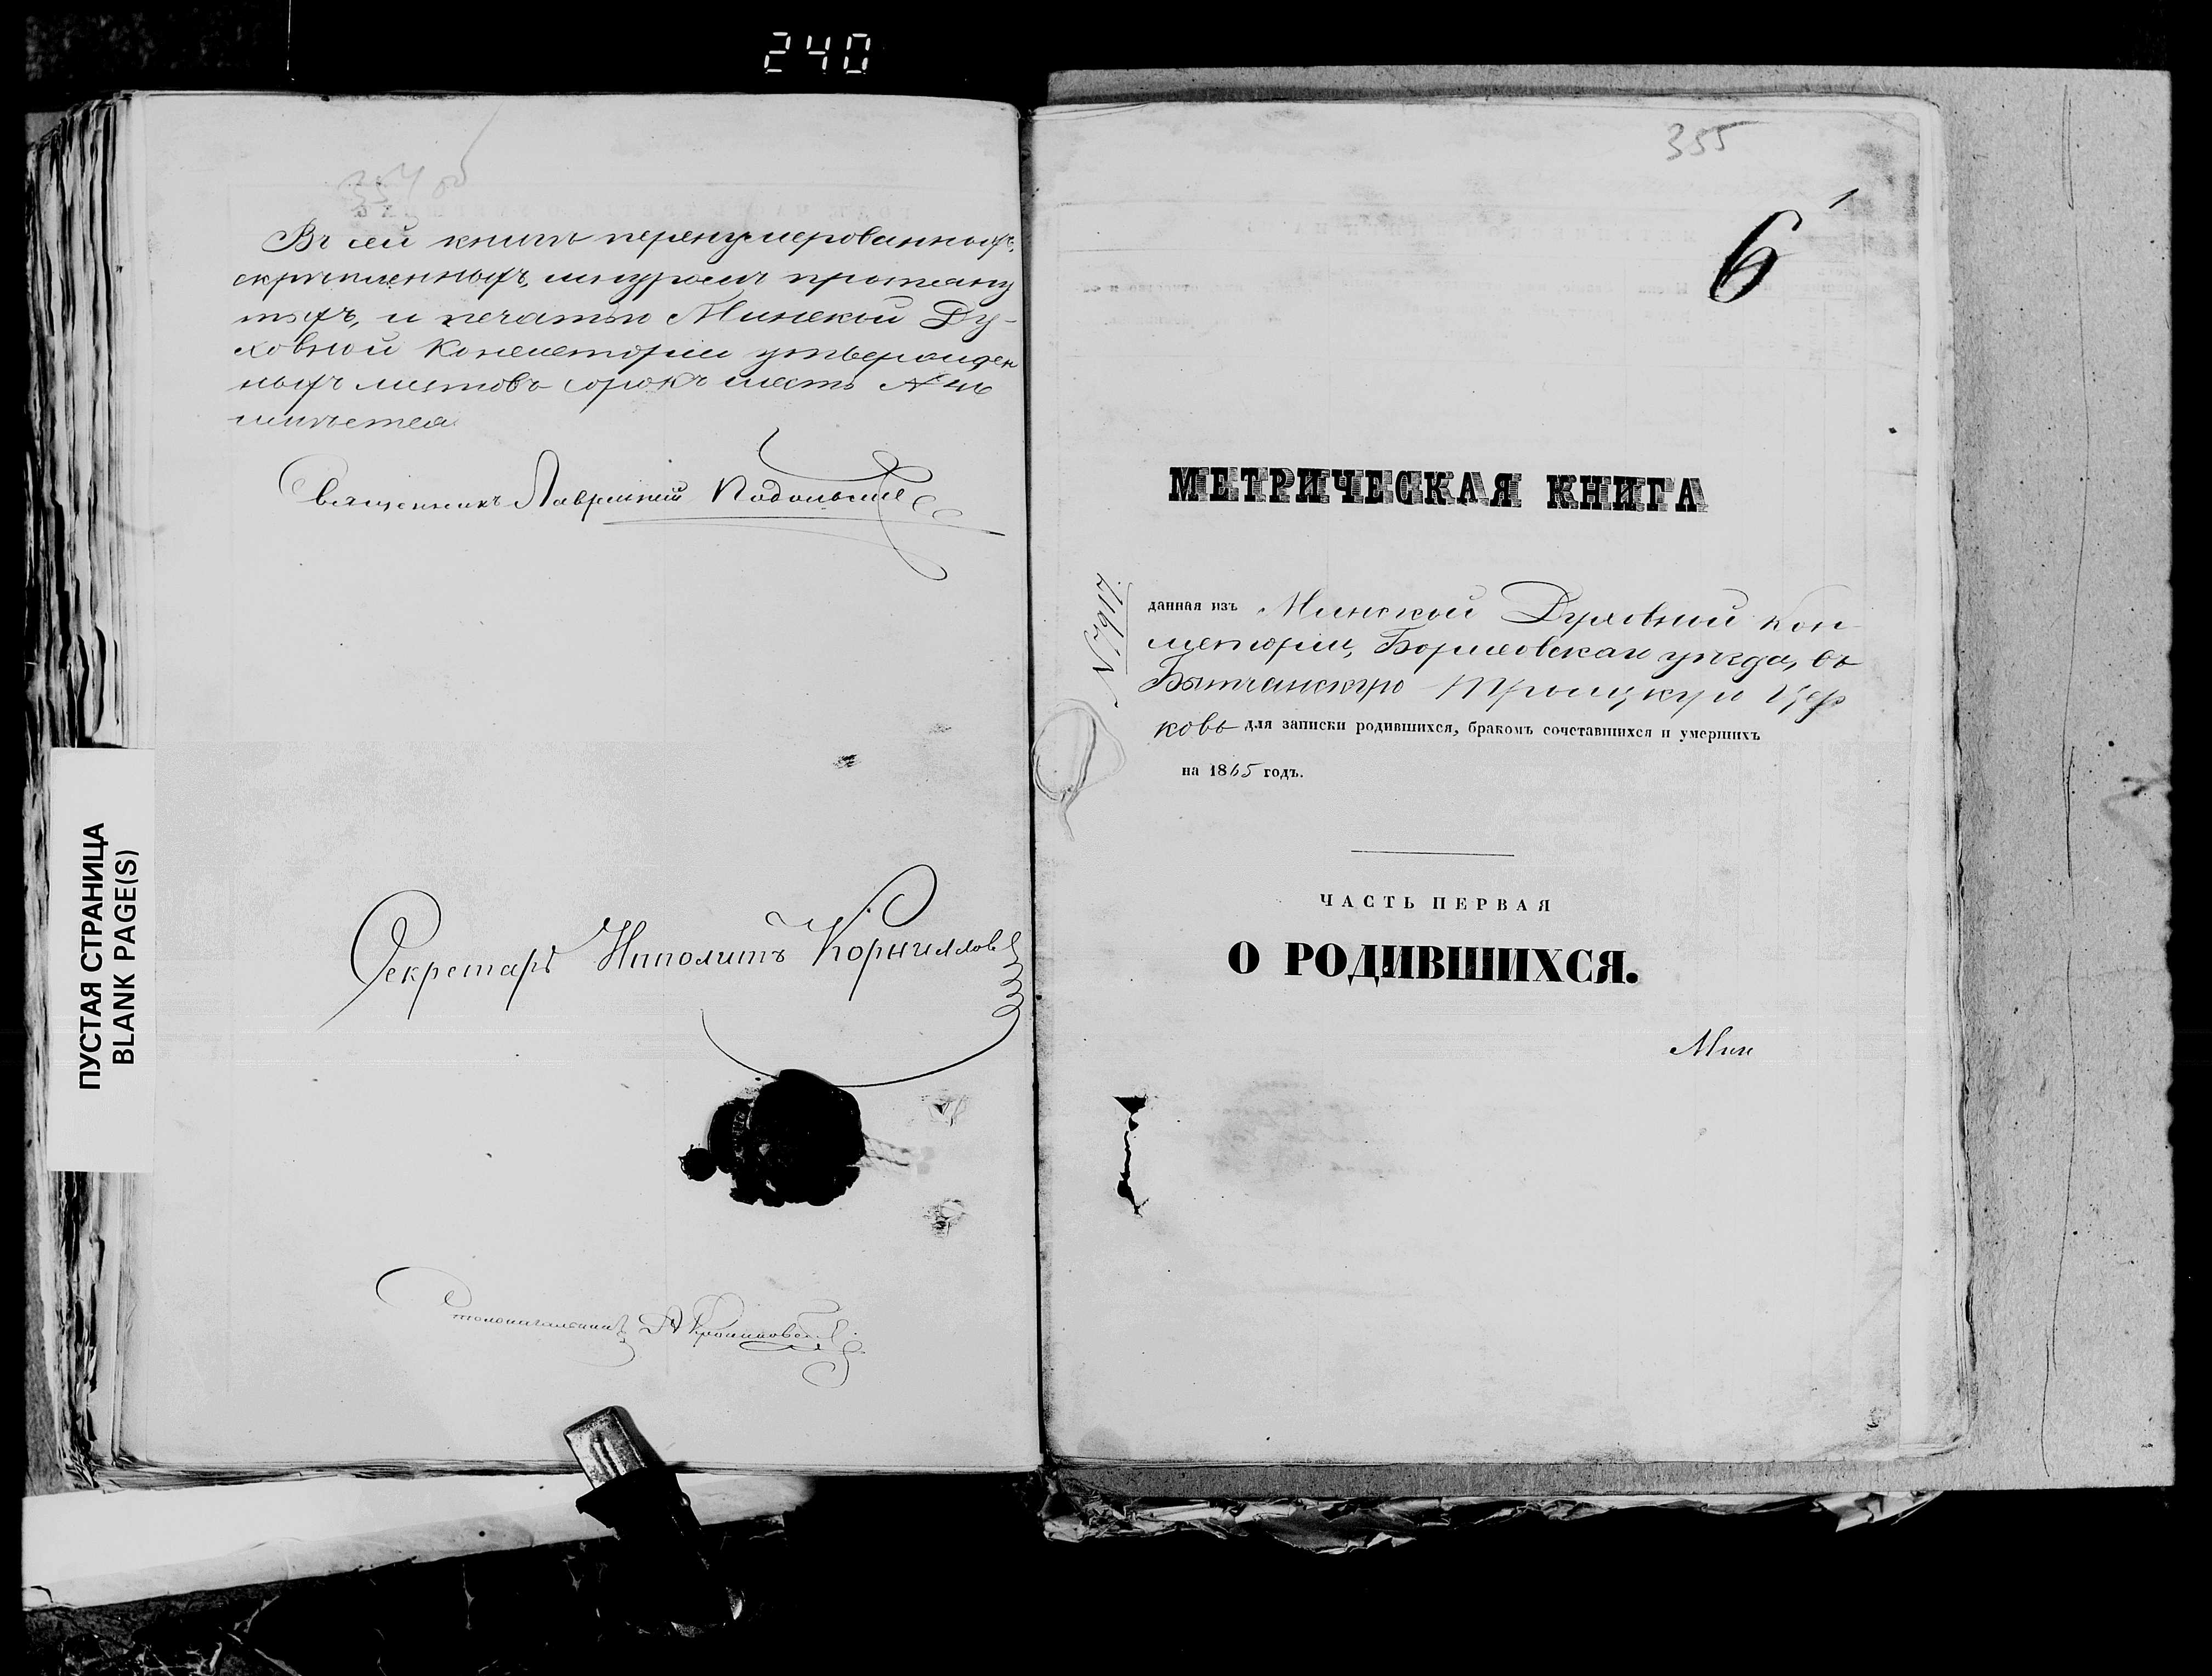 240
354 об
Въ сей книгѣ перенумерованныхъ,
скрѣпленныхъ, шнуромъ протяну
тыхъ, и печатью Минской Ду-
ховной Консисторіи утвержден
ныхъ листовъ сорокъ шесть № 46
имѣется
Священникъ Лаврентій Подольскій
Секретарь Ипполитъ Корниллов
Столоначальникъ
ПУСТАЯ СТРАНИЦА
BLANK PAGE(S)
355
1
6
МЕТРИЧЕСКАЯ КНИГА
данная изъ Минской Духовной Кон
систоріи, Борисовскаго уѣзда, въ
Бытчанскую Троицкую Цер
ковь для записки родившихся, бракомъ сочетавшихся и умершихъ
на 1865 годъ.
ЧАСТЬ ПЕРВАЯ
О РОДИВШИХСЯ.
Мин